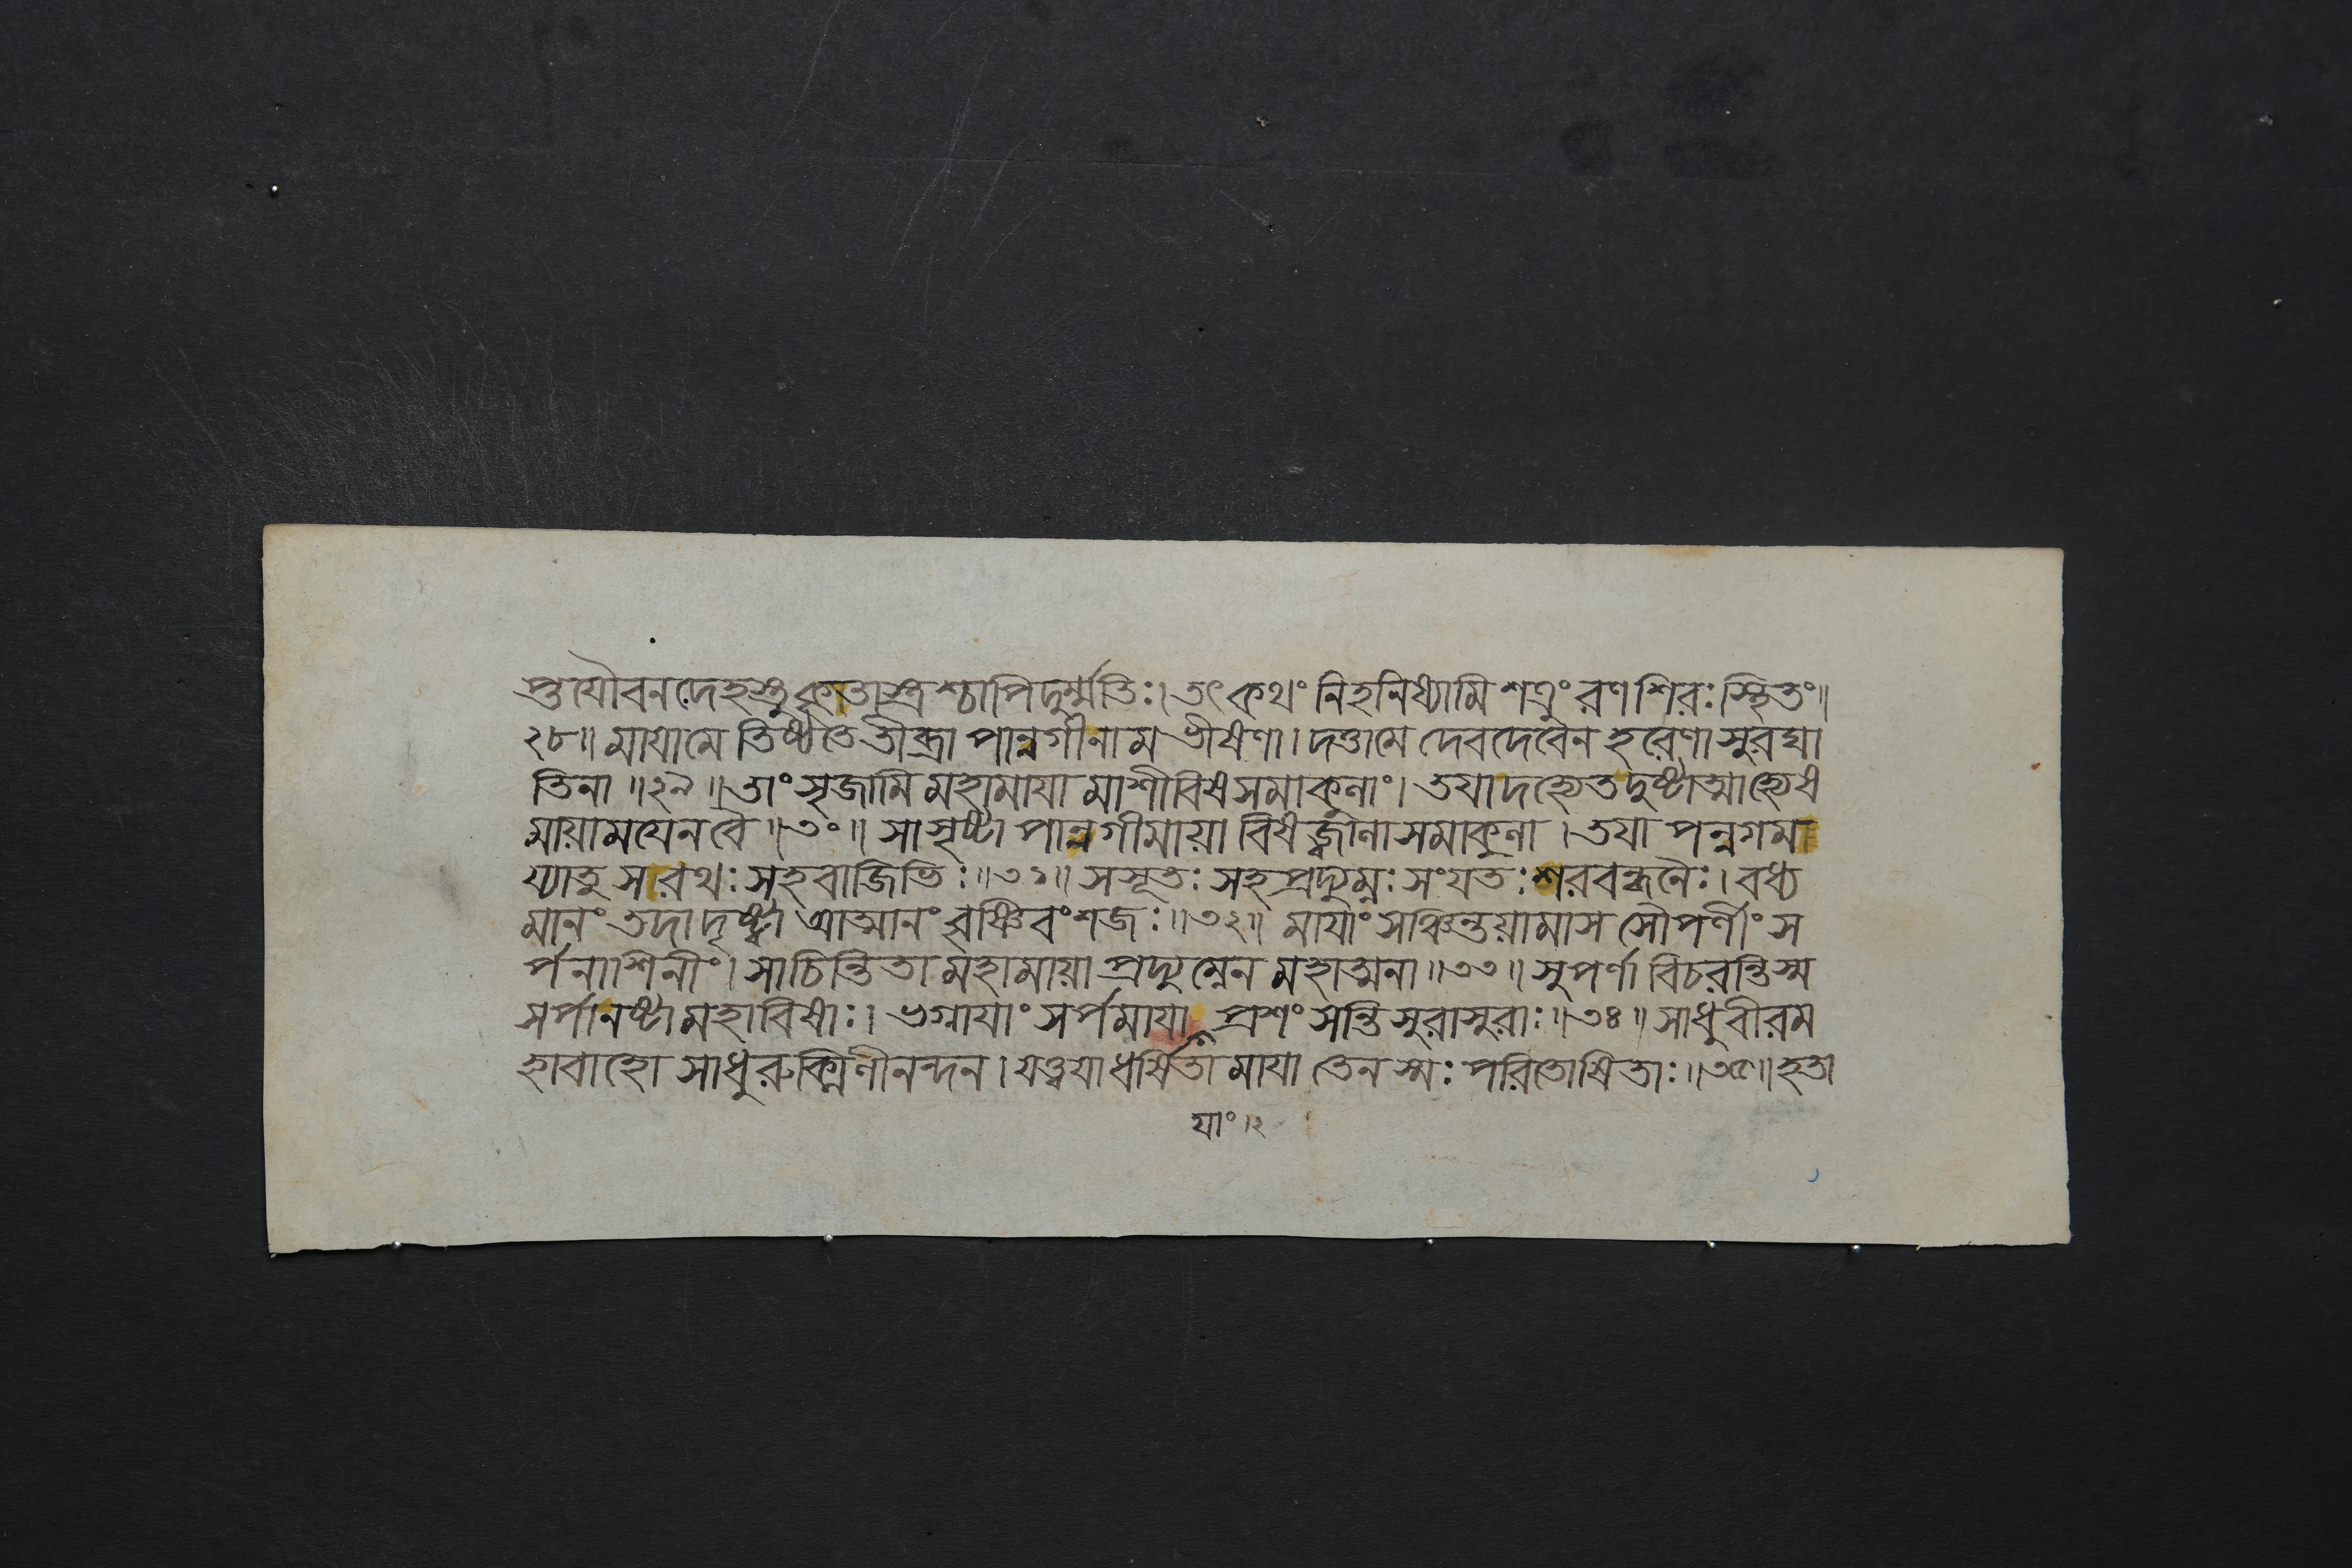 প্তুযৌবনদেহস্তু কৃতাস্ত্রশ্চাপি দুর্ম্মতিঃ। তৎ কথং নিহনিষ্যামি শত্রুং রণশিরঃস্থিতং॥
২৮॥ মাযা মে তিষ্ঠতে তীব্রা পান্নগী নাম ভীষণা। দত্তা মে দেবদেবেন হরেণাসুরঘা
তিনা॥২৯॥ তাং সৃজামি মহামাযামাশীবিষসমাকুলাং। তযা দহ্যেত দুষ্টাত্মা হ্যেষ
মাযাময়েন বৈ॥৩০॥ সা সৃষ্টা পান্নগী মাযা বিষজ্বালাসমাকুলা। তযা পন্নগমা
য্যাতু সরথঃ সহবাজিভিঃ॥৩১॥ সসূতঃ সহপ্রদ্যুম্নঃ সংযতঃ শরবন্ধনৈঃ। বধ্য
মানং তদা দৃষ্ট্বা আত্মানং বৃষ্ণিবংশজঃ॥৩২॥ মাযাং সঞ্চিন্তযামাস সৌপর্ণীং স
র্পনাশিনীং। সা চিন্তিতা মহামাযা প্রদ্যুম্নেন মহাত্মনা॥৩৩॥ সুপর্ণা বিচরন্তি স্ম
সর্পা নষ্টা মহাবিষাঃ। ভগ্নাযাং সর্পমাযা প্রশংসন্তি সুরাসুরাঃ॥৩৪॥ সাধু বীর ম
হাবাহো সাধু রুক্মিণীনন্দন। যত্ত্বযা ধর্ষিতা মাযা তেন স্মঃ পরিতোষিতাঃ॥৩৫॥ হতা
যাং।২